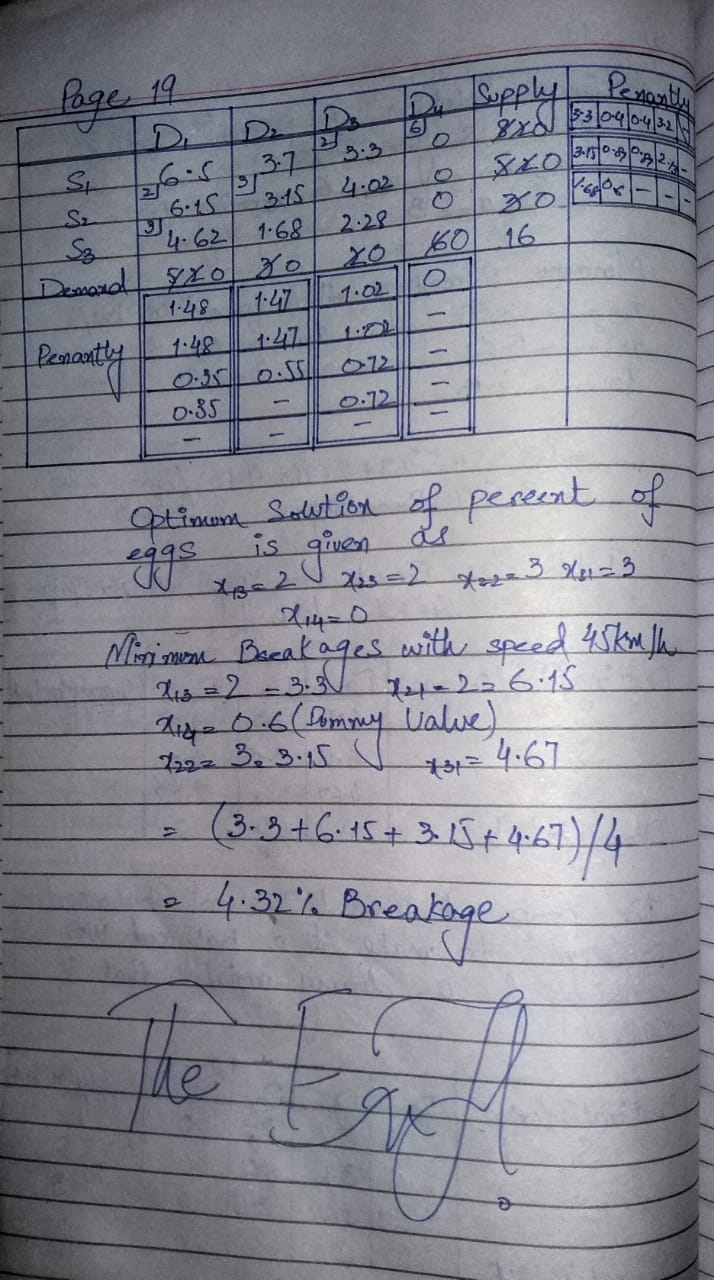 Page 19
D₁ D₂ D₃ D₄ Supply Penantly
S₁ 6.5 3.7 2 3.3 6 0 8 2 0 3.3 0.4 0.4 3.2
S₂ 2 6.15 3 3.15 4.02 0 5 2 0 3.15
S₃ 3 4.62 1.68 2.28 0 3 0 1.68
Demand 5 2 0 3 0 2 0 6 0 16
1.48 1.47 1.02 0
Penantly 1.48 1.47 1.02 -
0.35 0.55 0.72 -
0.35 - 0.72 -
- - - -
Optimum Solution of percent of
eggs is given as
x₁₃=2 x₂₃=2 x₂₂=3 x₃₁=3
x₁₄=0
Minimum Breakages with speed 45km/h
x₁₃=2=3.3 x₂₁=2=6.15
x₁₄=0.6(Dummy Value)
x₂₂=3=3.15 x₃₁=4.67
= (3.3+6.15+3.15+4.67)/4
= 4.32% Breakage
The End.